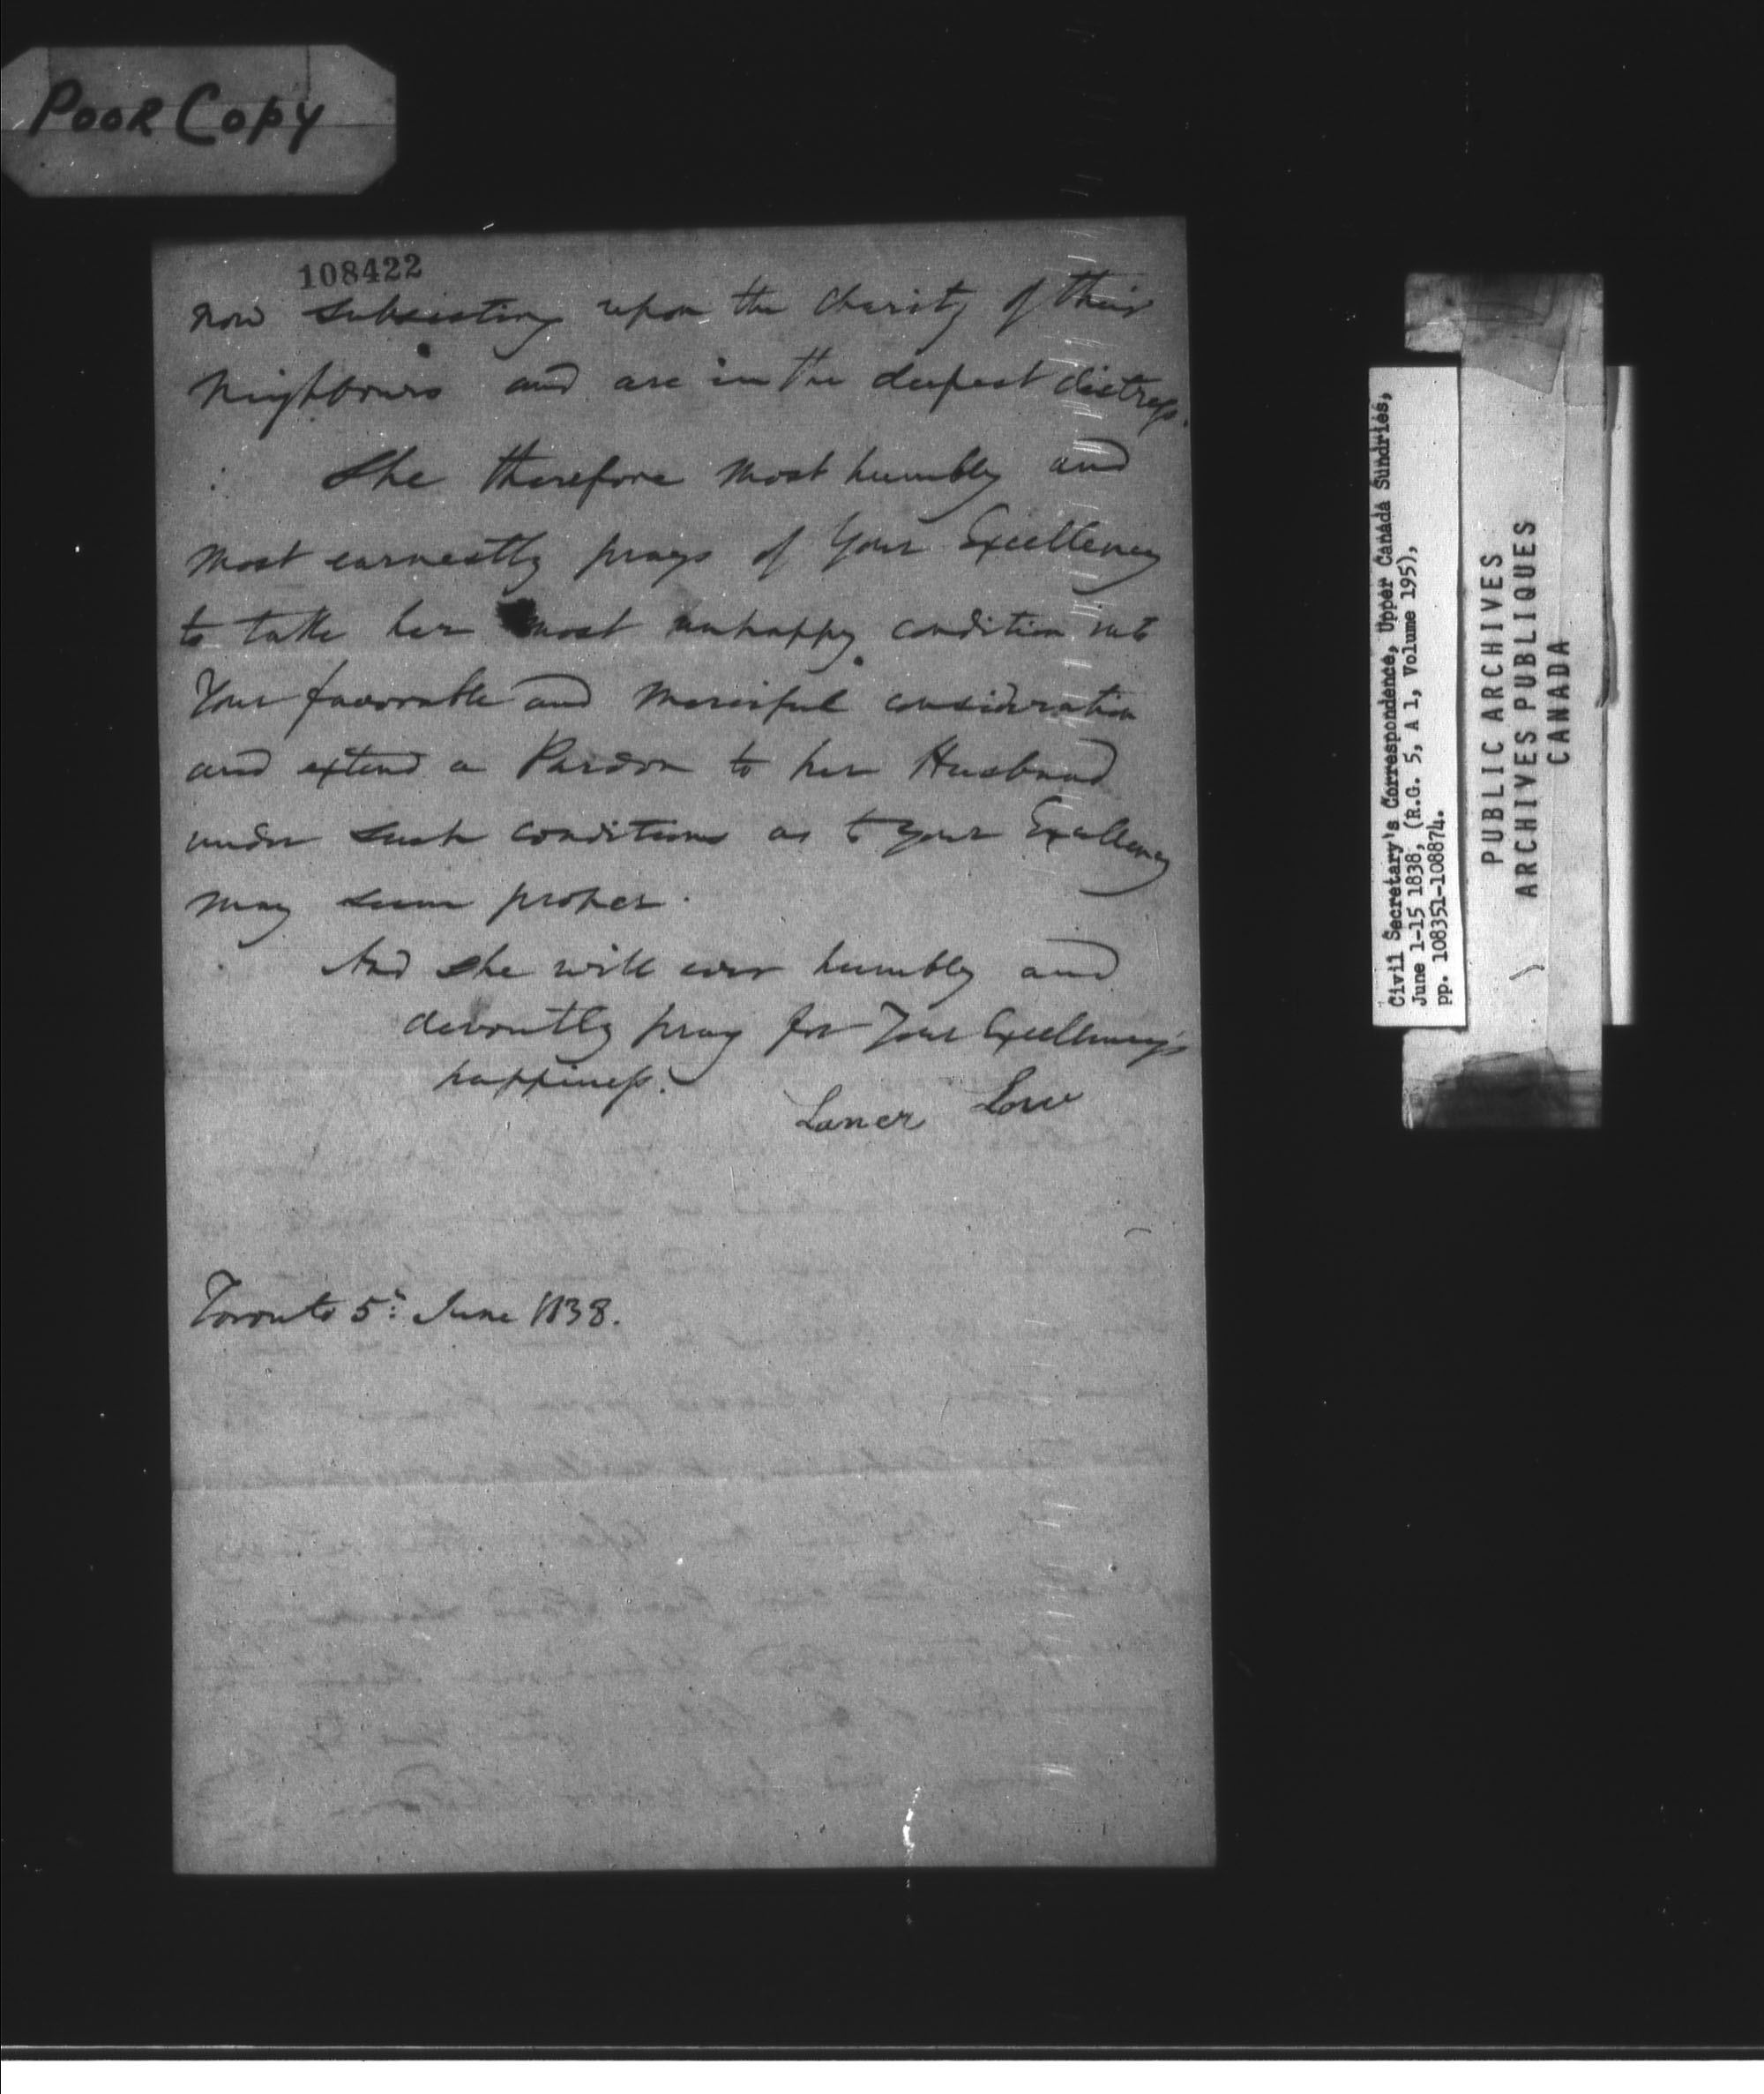 Poor Copy
108422
now subsisting upon the charity of their
Neighbours and are in the deepest distress.
She therefore most humbly and
most earnestly prays of Your Excellency
to take her most unhappy condition into
Your favorable and merciful consideration
and extend a Pardon to her Husband
under such conditions as to Your Excellency
may seem proper.
And she will ever humbly and
devoutly pray for Your Excellency's
happiness.
Laner Low
Toronto 5th June 1838.
Civil Secretary's Correspondence, Upper Canada Sundries,
June 1-15 1838, (R.G. 5, A 1, Volume 195),
pp. 108351-108874.
PUBLIC ARCHIVES
ARCHIVES PUBLIQUES
CANADA